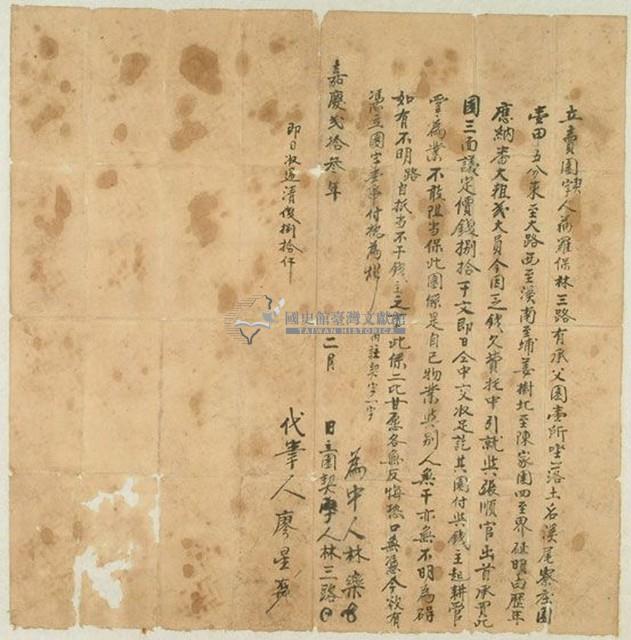 立賣園契人荷雅保林三路有承父園壹所坐落土名溪尾藔庄園
壹甲五分東至大路西至溪南至埔姜樹北至陳家園四至界址明白歷年
應納番大租弍大員今因乏錢欠費托中引就與張順官出首承買此
園三面議定價錢捌拾千文即日仝中交收足訖其園付與錢主起耕管
掌為業不敢阻当保此園係是自己物業與別人無干亦無不明為碍
如有不明路自抵当不干錢主之事此係二比甘愿各無反悔恐口無憑今欲有
憑立園字壹紙付執為炤
再註契字一字
即日收過清錢捌拾仟
為中人林樂
嘉慶弍拾叁年二月 日立園契字人林三路
代筆人廖星
國史館臺灣文獻館
TAIWAN HISTORICA